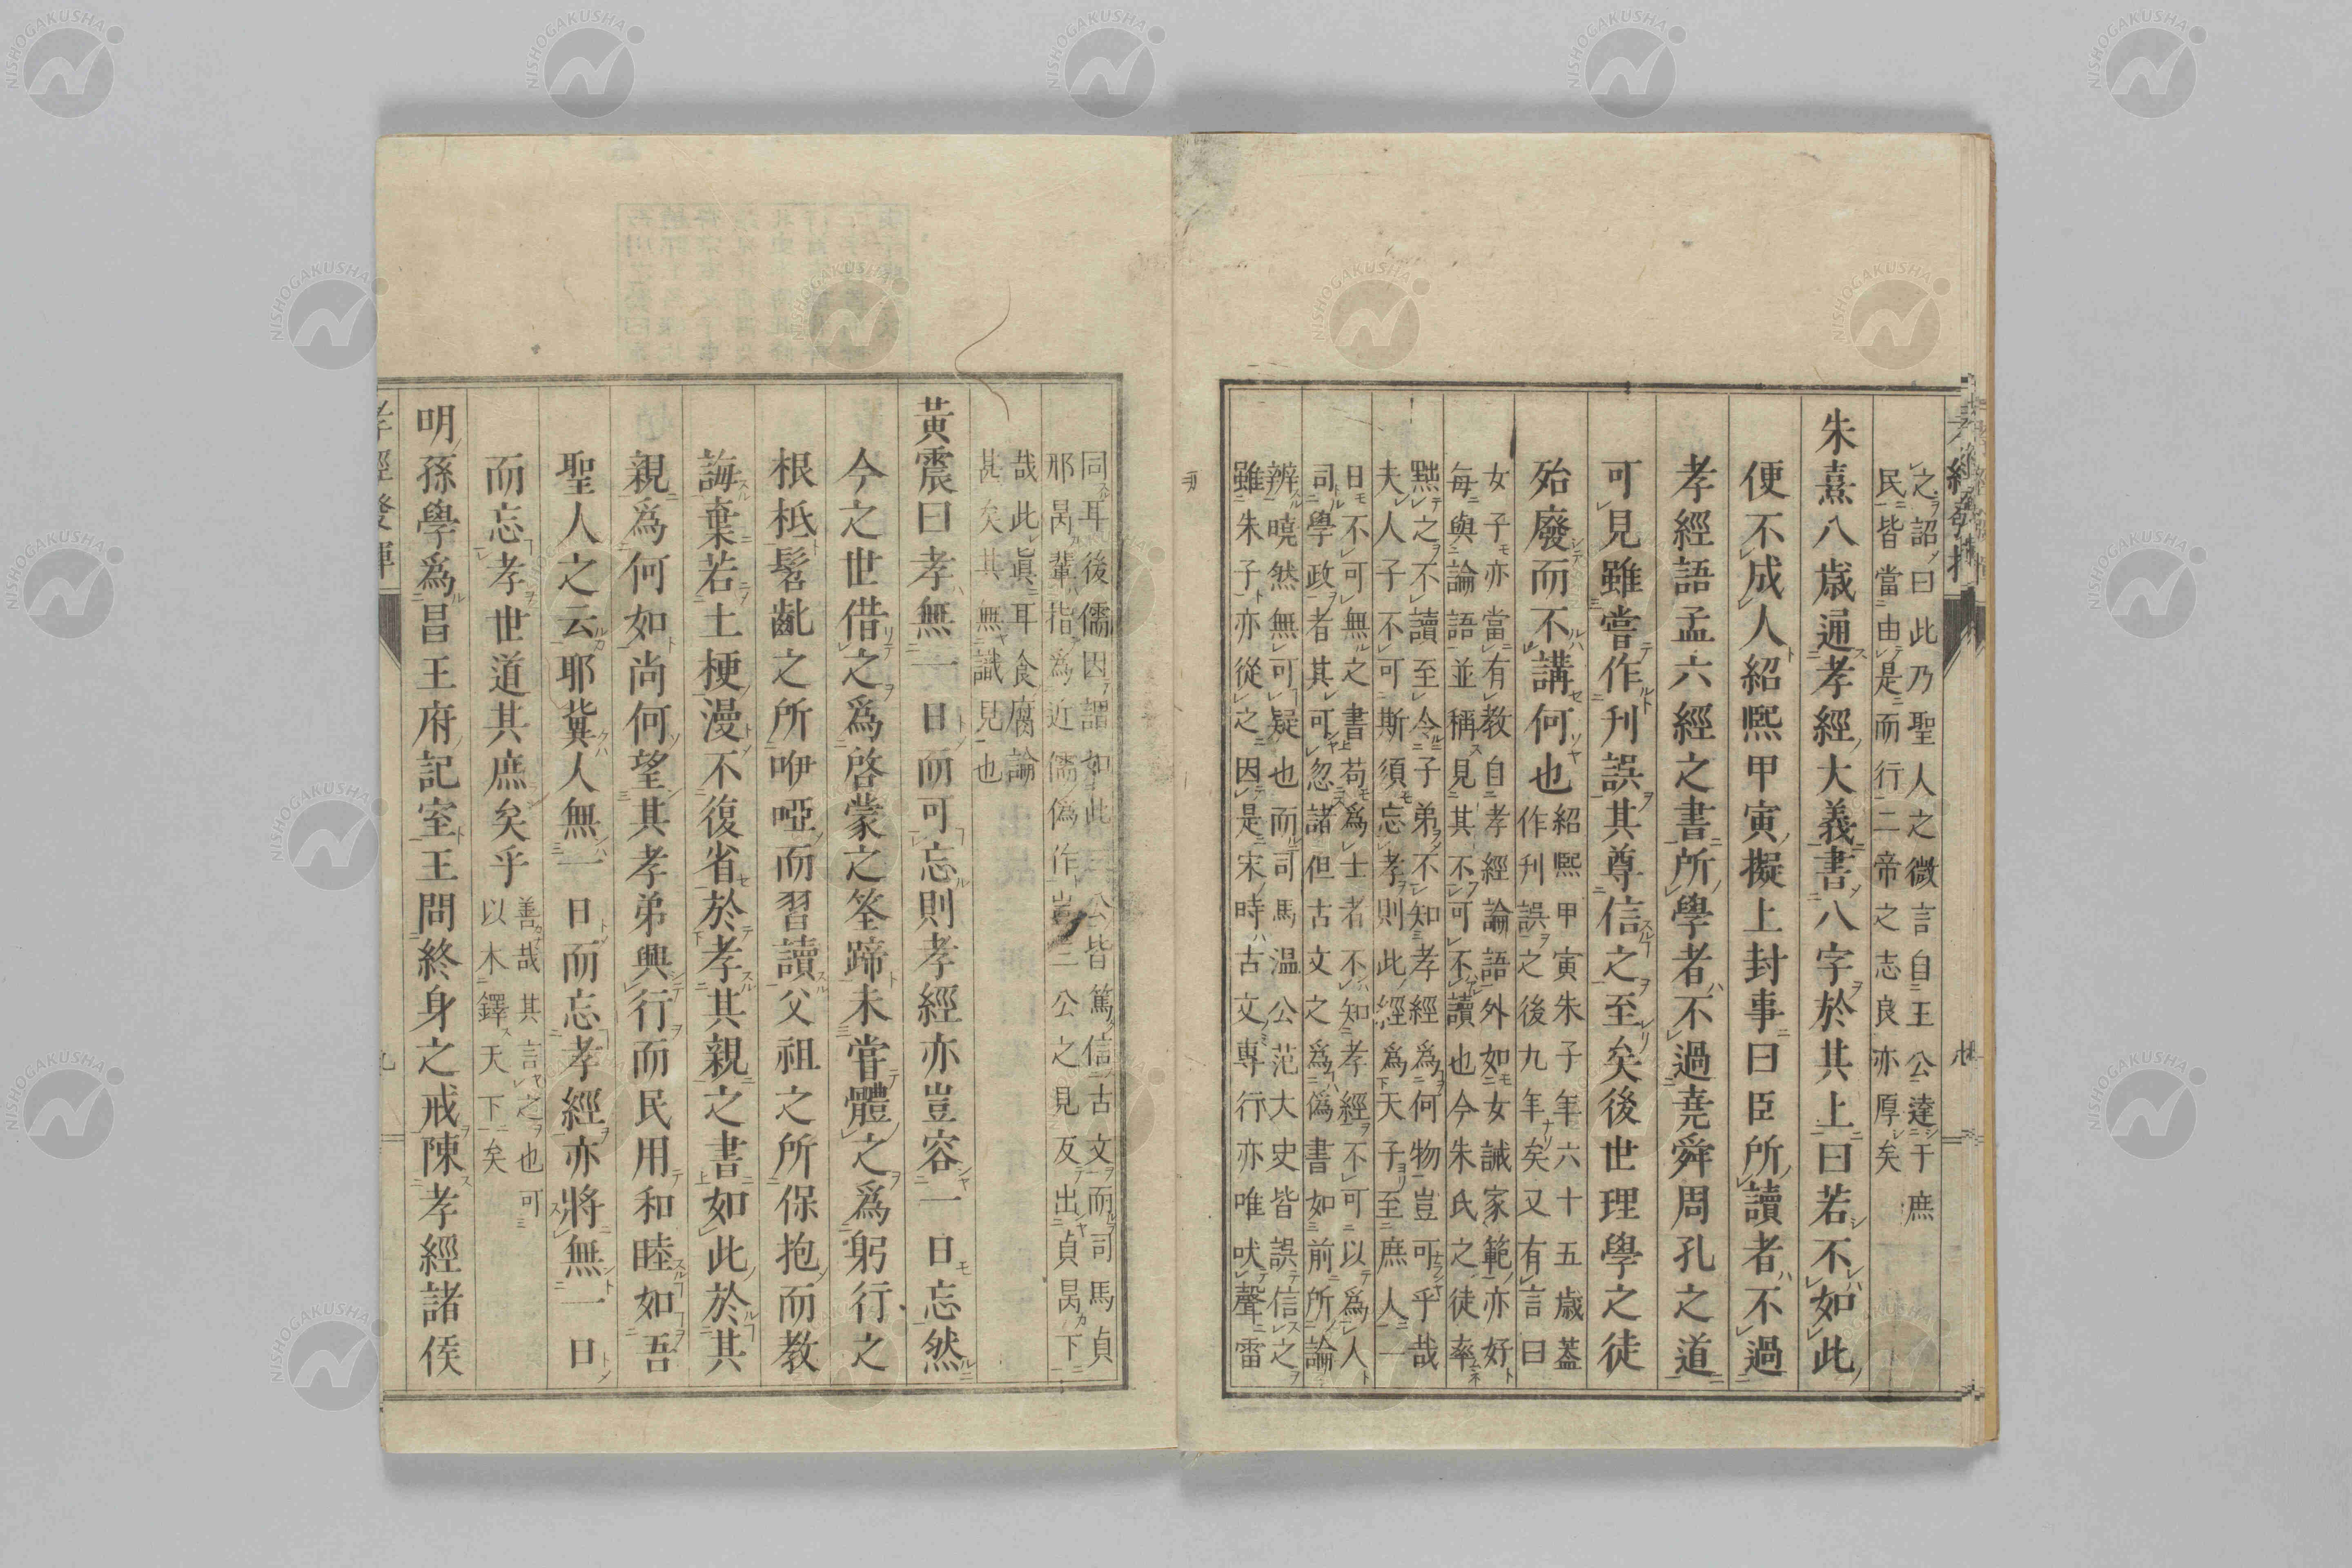 之詔曰此乃聖人之微言自王公達于庶
民皆當由是而行二帝之志良亦厚矣
朱熹八歲通孝經大義書八字於其上曰若不如此
便不成人紹熙甲寅擬上封事曰臣所讀者不過
孝經語孟六經之書所學者不過堯舜周孔之道
可見雖嘗作刊誤其尊信之至矣後世理學之徒
殆廢而不講何也
紹熙甲寅朱子年六十五歲蓋
作刊誤之後九年矣又有言曰
女子亦當有教自孝經論語外如女誡家範亦好
每與論語並稱見其不可不讀也今朱氏之徒率
黜之不讀至令子弟不知孝經爲何物豈可乎哉
夫人子不可斯須忘孝則此經爲天子至庶人一
日不可無之書苟爲士者不知孝經不可以爲人
司學政者其可忽諸但古文之爲僞書如前所論
辨曉然無可疑也而司馬溫公范大史皆誤信之
雖朱子亦從之因是宋時古文專行亦唯吠聲雷
同耳後儒因謂如此二公皆篤信古文而司馬貞
邢昺輩指爲近儒僞作豈二公之見反出貞昺下
哉此眞耳食腐論
甚矣其無識見也
黃震曰孝無一日而可忘則孝經亦豈容一日忘然
今之世借之爲啓蒙之筌蹄未嘗體之爲躬行之
根柢髫齓之所咿啞而習讀父祖之所保抱而教
誨棄若土梗漫不復省於孝其親之書如此於其
親爲何如尚何望其孝弟興行而民用和睦如吾
聖人之云耶冀人無一日而忘孝經亦將無一日
而忘孝世道其庶矣乎
善哉其言之也可
以木鐸天下矣
明孫學爲昌王府記室王問終身之戒陳孝經諸侯